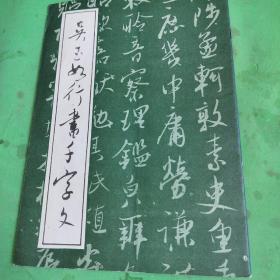 吳玉如行書千字文
孟軻敦素史魚
庶幾中庸勞謙
聆音察理鑑貌辨
嘉猷勉其祗植